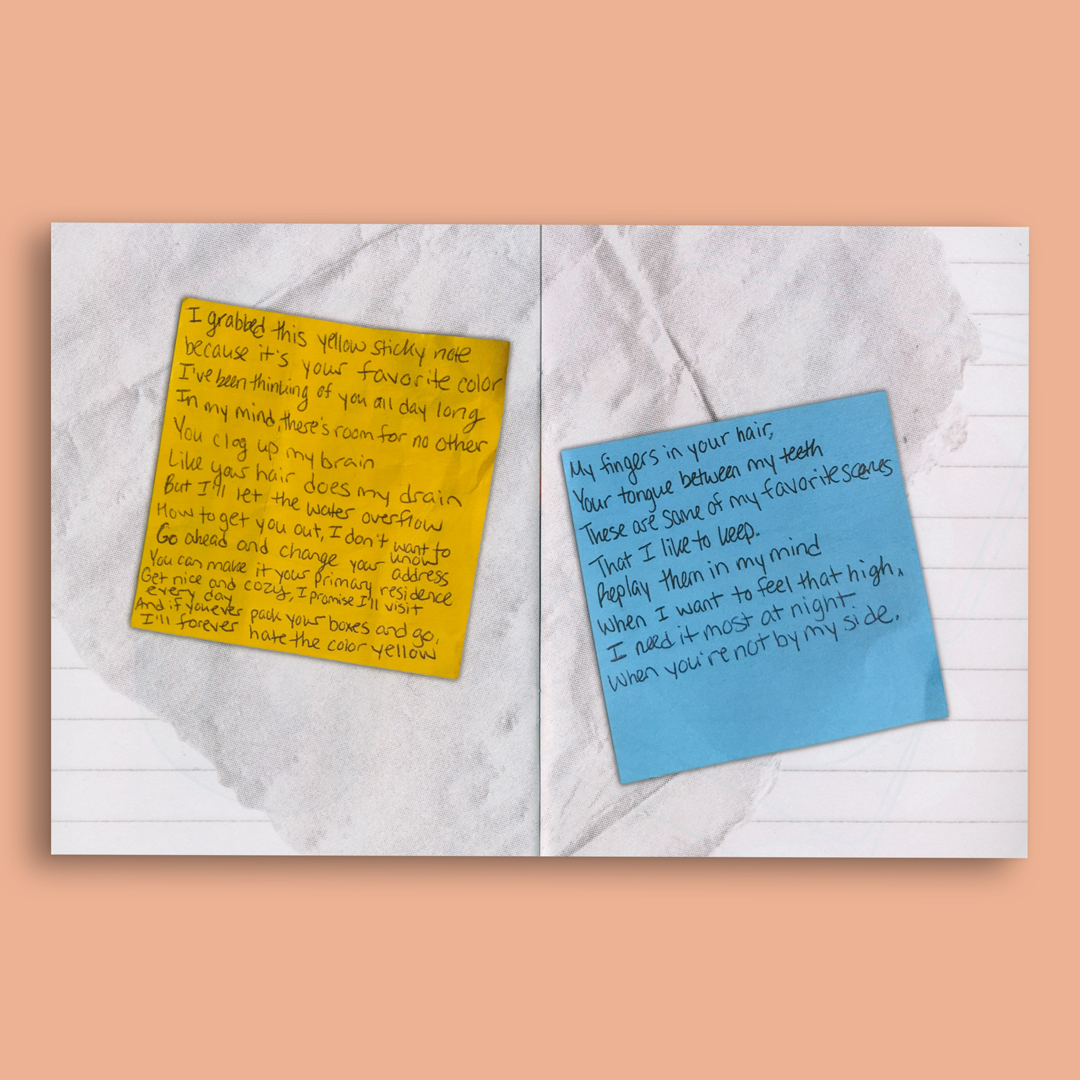 I grabbed this yellow sticky note
because it's your favorite color
I've been thinking of you all day long
In my mind, there's room for no other
You clog up my brain
Like your hair does my drain
But I'll let the water overflow
How to get you out, I don't want to know
Go ahead and change your address
You can make it your primary residence
Get nice and cozy, I promise I'll visit
every day
And if you ever pack your boxes and go,
I'll forever hate the color yellow
My fingers in your hair,
Your tongue between my teeth
These are some of my favorite scenes
That I like to keep.
Replay them in my mind
when I want to feel that high.
I need it most at night.
When you're not by my side.